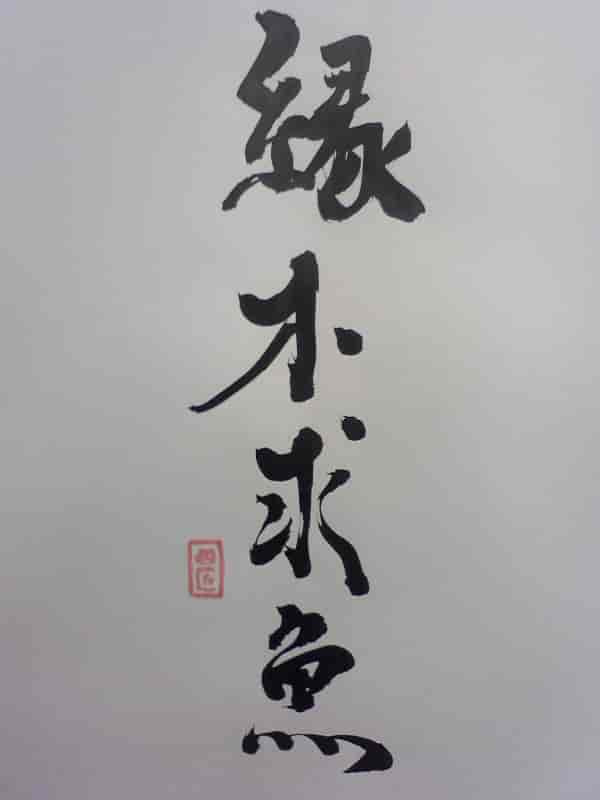 縁木求魚